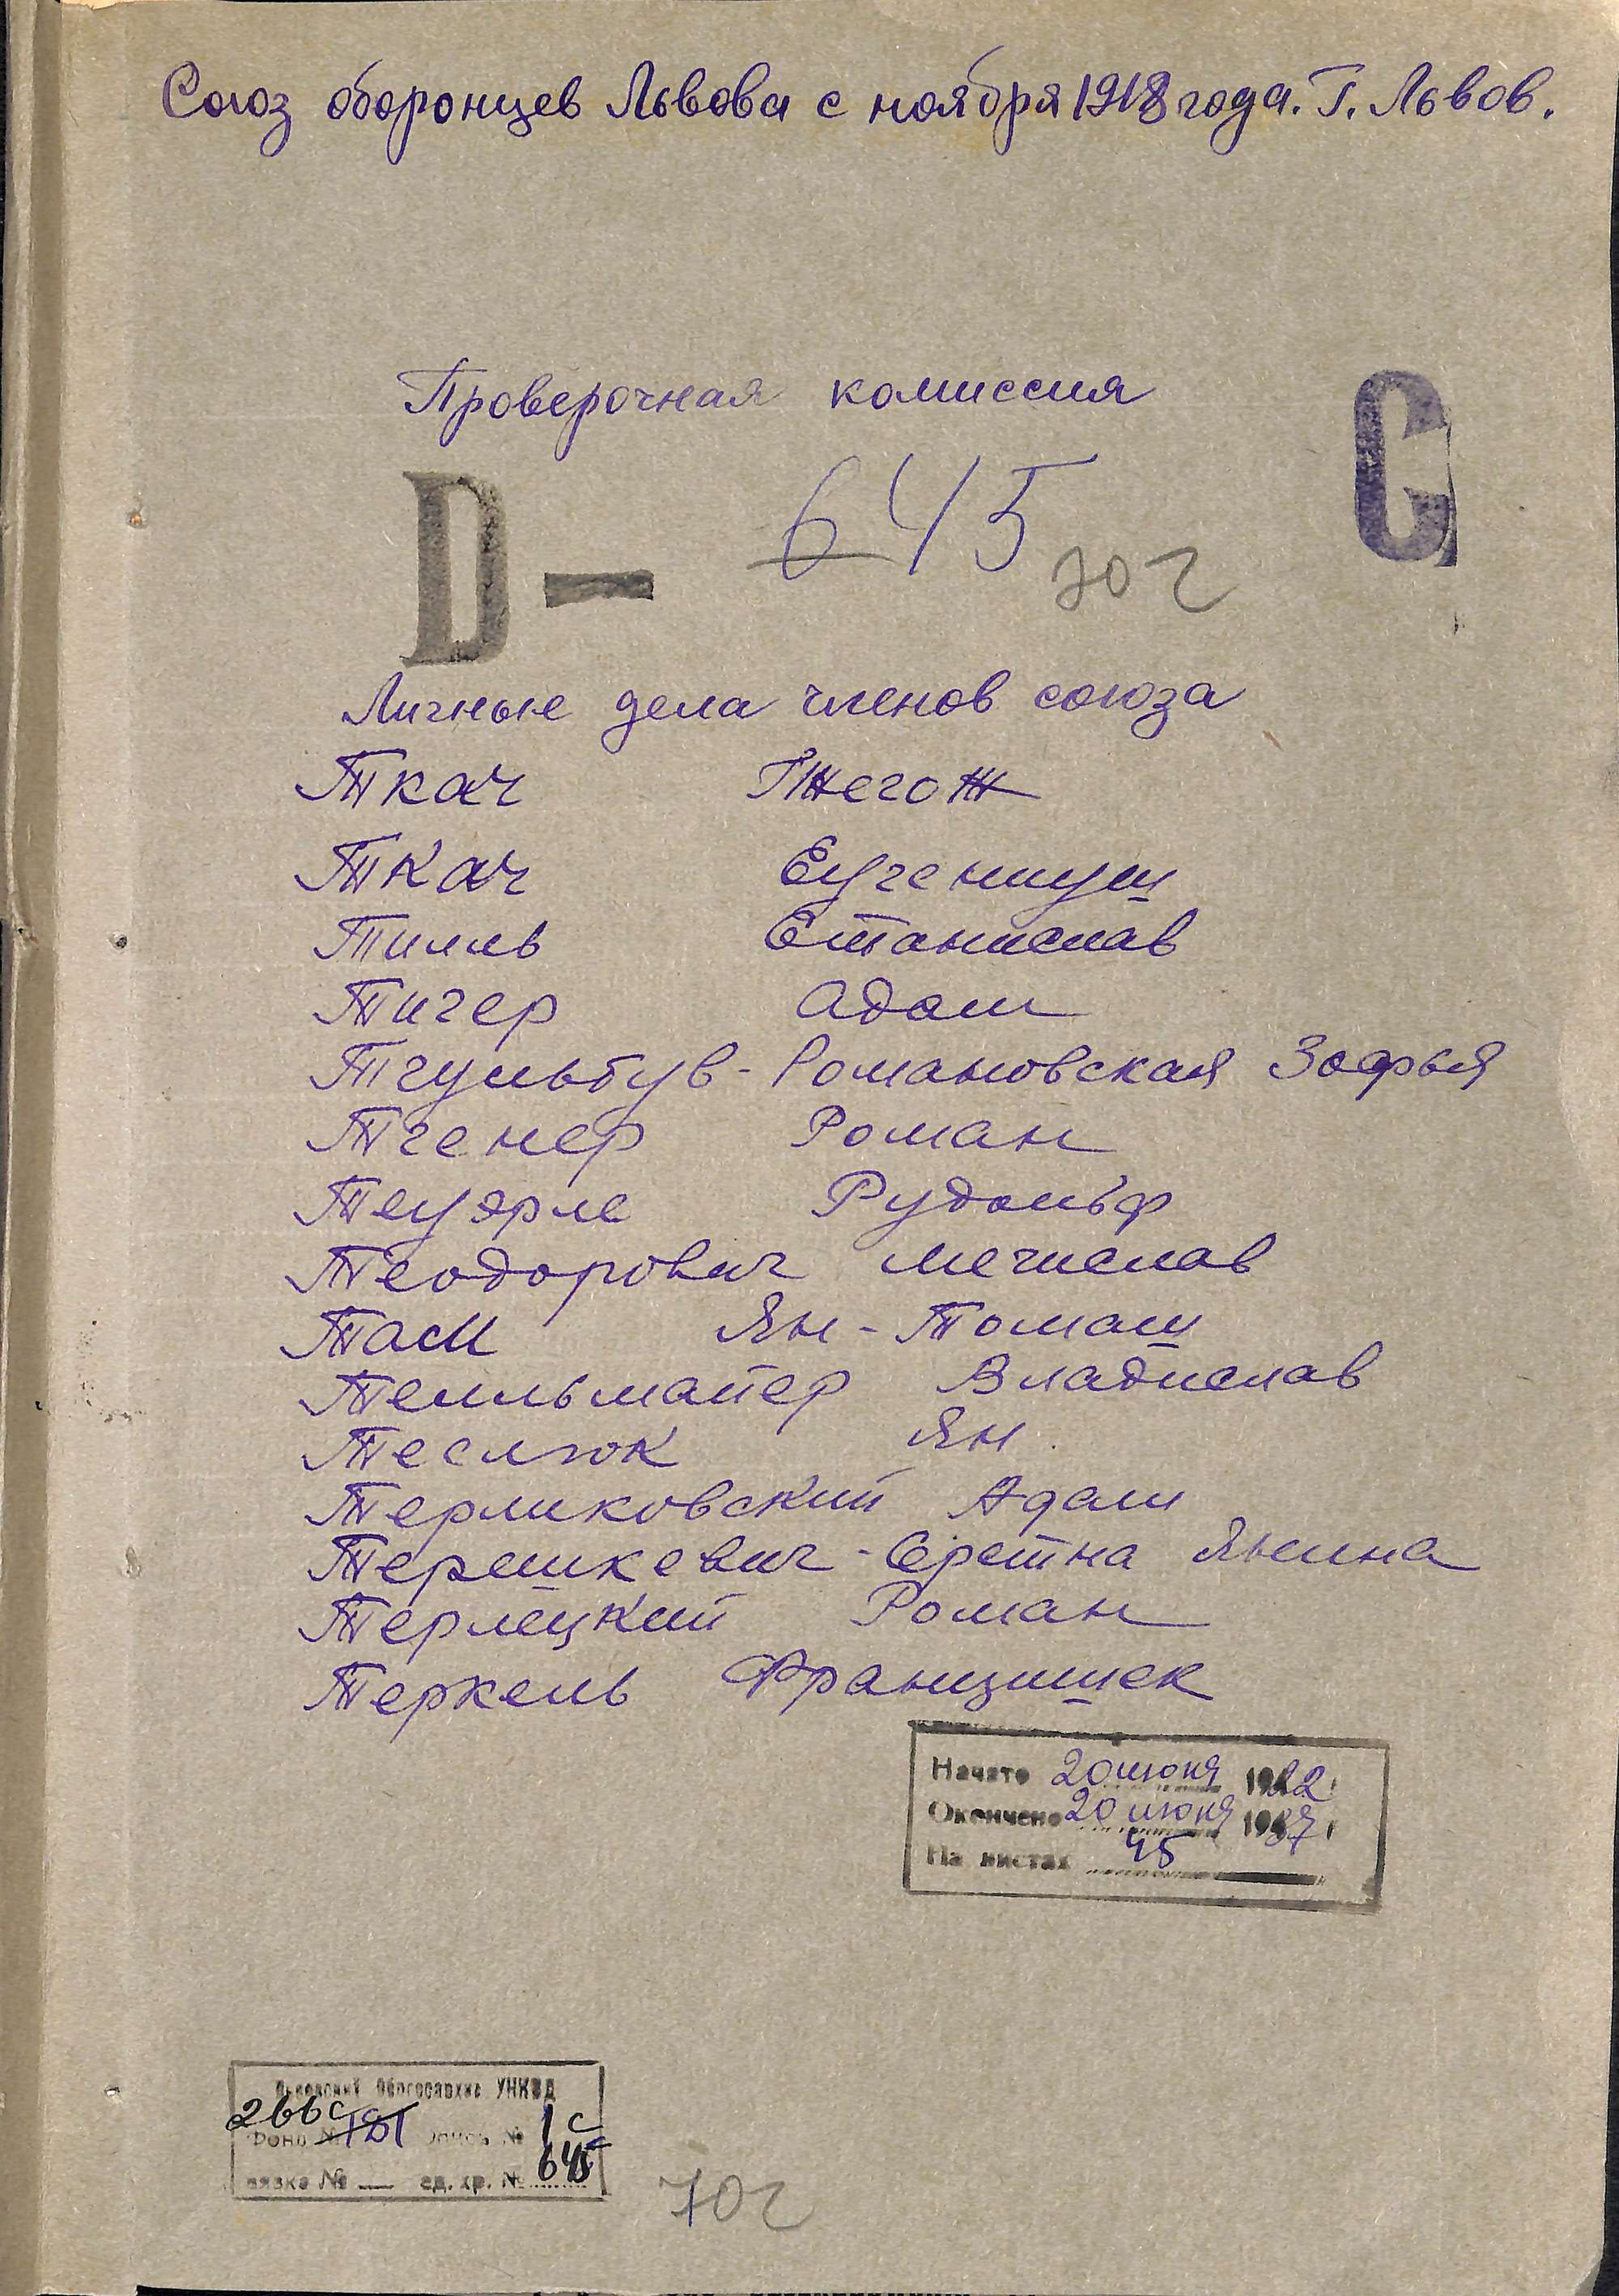 Союз оборонцев Львова с ноября 1918 года. Г. Львов.
Проверочная комиссия
С
D — 645
702
Личные дела членов союза
Ткач Гжегож
Ткач Еугениуш
Тилль Станислав
Тигер Адам
Тгульбув-Романовская Зофья
Тгенер Роман
Теуэрле Рудольф
Теодорович Мечислав
Таси Ян-Томаш
Телльмайер Владислав
Теслюк Ян
Терликовский Адам
Терешкевич-Сретна Янина
Терлецкий Роман
Теркель Францишек
Начато 20 июня 1922 г
Окончено 20 июня 1937 г
На листах 45
Львовский Облгосархив УНКВД
266с
Фонд № 181 Опись № 1с
вязка № — ед. хр. № 645
702